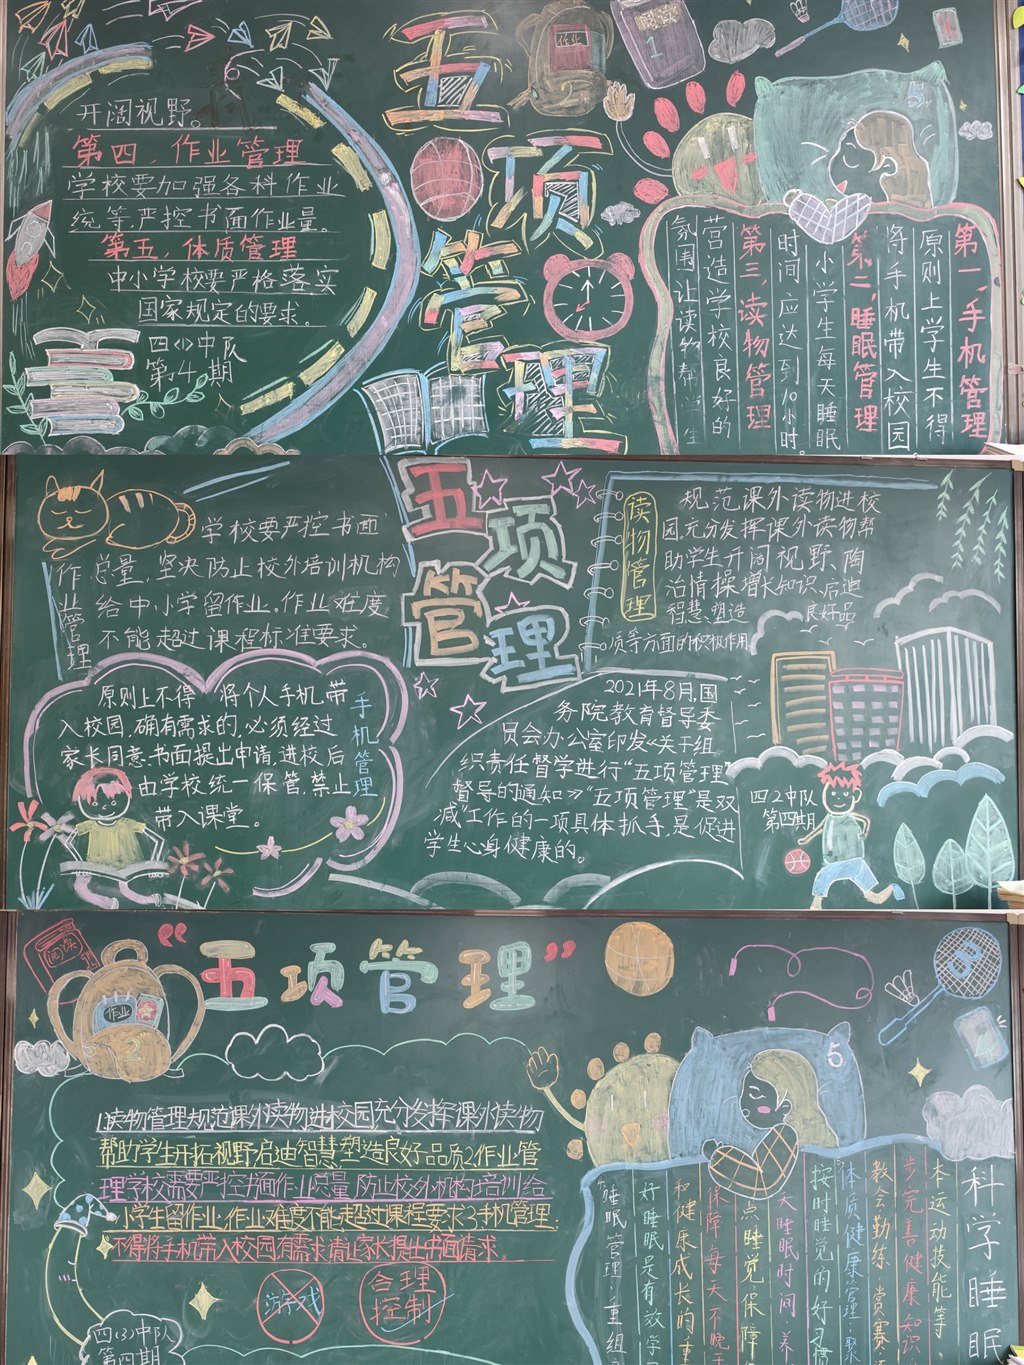 五项管理
开阔视野。
第四、作业管理
学校要加强各科作业
统筹,严控书面作业量。
第五、体质管理
中小学校要严格落实
国家规定的要求。
四(1)中队
第4期
作业
2
1
5
第一、手机管理
原则上学生不得
将手机带入校园
第二,睡眠管理
小学生每天睡眠
时间应达到10小时。
第三、读物管理
营造学校良好的
氛围,让读物帮
五项管理
作业管理
学校要严控书面
总量,坚决防止校外培训机构
给中小学留作业。作业难度
不能超过课程标准要求。
手机管理
原则上不得将个人手机带
入校园,确有需求的,必须经过
家长同意书面提出申请,进校后
由学校统一保管,禁止
带入课堂。
读物管理
规范课外读物进校
园。充分发挥课外读物帮
助学生开阔视野、陶
冶情操增长知识、启迪
智慧、塑造良好品
质等方面的积极作用
2021年8月,国
务院教育督导委
员会办公室印发《关于组
织责任督学进行“五项管理”
督导的通知》“五项管理”是双
减”工作的一项具体抓手,是促进
学生心身健康的。
四2中队
第四期
“五项管理”
阅读
作业
2
1读物管理规范课外读物进校园充分发挥课外读物
帮助学生开拓视野启迪智慧塑造良好品质2作业管
理学校需要严控书面作业总量,防止校外机构培训给
小学生留作业,作业难度不能超过课程要求3手机管理
不得将手机带入校园有需求请让家长提出书面请求。
游戏
合理
控制
四(3)中队
第四期
5
3
4
科学睡眠
本运动技能等。
步完善健康知识
教会勤练,赏赛
体质健康管理:聚
按时睡觉的好习惯
天睡眠时间,养
点睡觉保障
保障每天不晚于
和健康成长的重
好睡眠是有效学
睡眠管理:重组